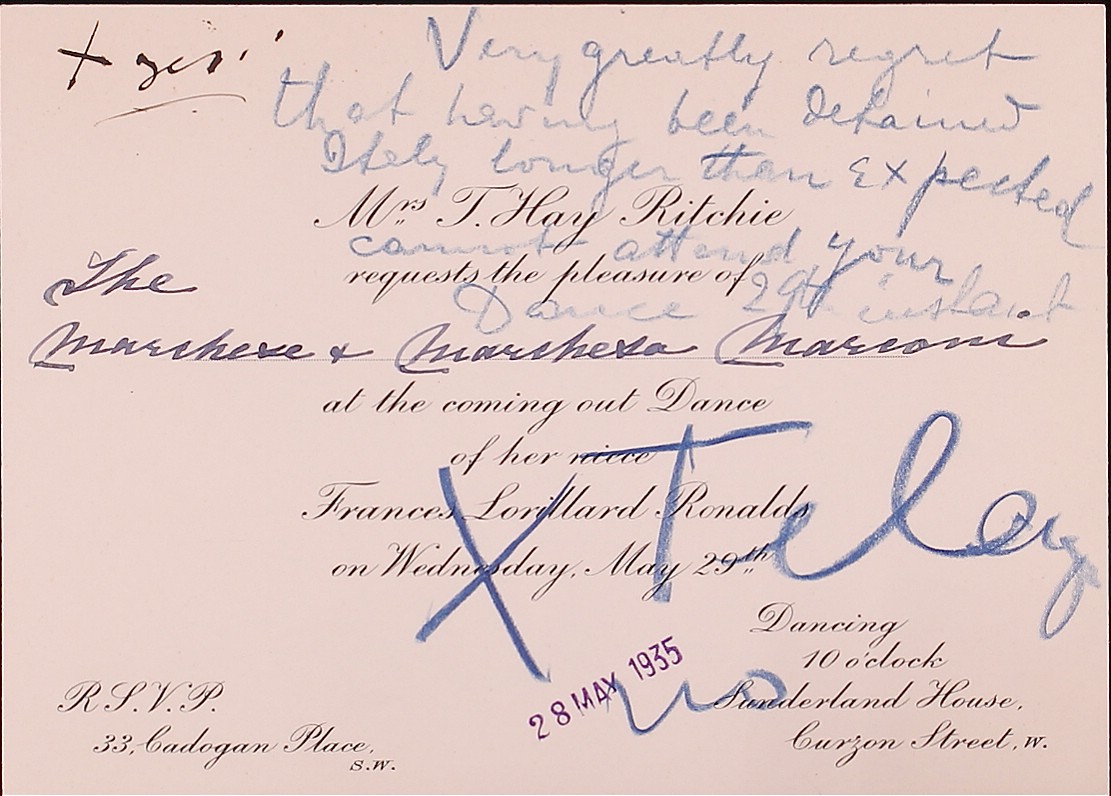 + yes!
Very greatly regret
that having been detained
Italy longer than expected
Mrs T. Hay Ritchie
cannot attend your
requests the pleasure of
Dance 29th instant
The
Marchese & Marchesa Marconi
at the coming out Dance
of her niece
Frances Lorillard Ronalds
on Wednesday, May 29th
X Teleg
no
28 MAY 1935
Dancing
10 o'clock
Sunderland House,
Curzon Street, W.
R.S.V.P.
33, Cadogan Place,
S.W.